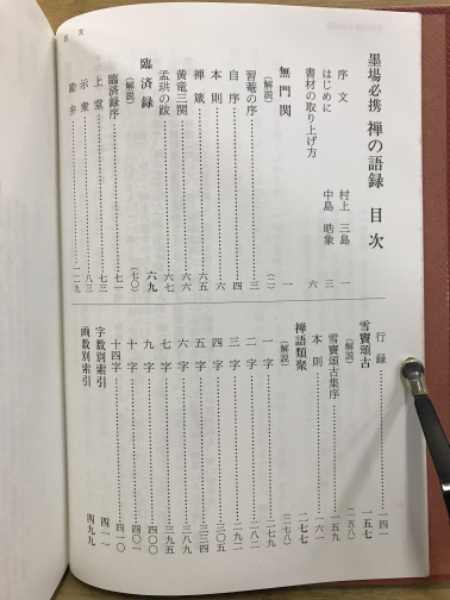 目次
墨場必携 禅の語録 目次
序文 村上三島 一
はじめに 中島皓象 三
書材の取り上げ方 六
無門関 一
(解説) (二)
習菴の序 三
自序 四
本則 六
禅箴 六五
黄竜三関 六六
孟珙の跋 六七
臨済録 六九
(解説) (七〇)
臨済録序 七一
上堂 七三
示衆 八三
勘弁 一二九
行録 一四一
雪竇頌古 一五七
(解説) (一五八)
雪竇頌古集序 一五九
本則 一六一
禅語類聚 二七七
(解説) (二七八)
一字 二七九
二字 二八二
三字 二九二
四字 三〇五
五字 三三四
六字 三八九
七字 三九五
九字 四〇〇
十字 四〇一
十四字 四一〇
字数別索引 四一一
画数別索引 四九九